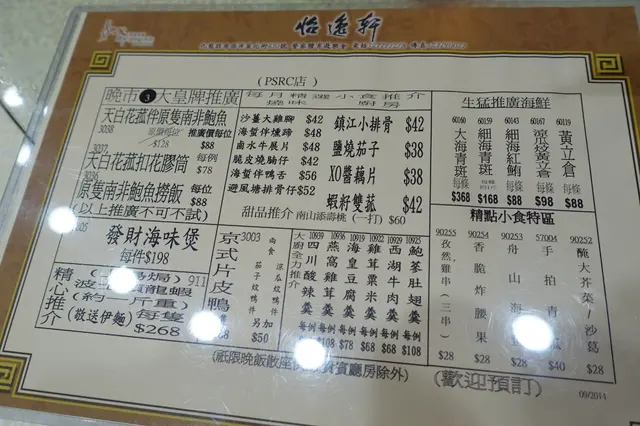 怡逸軒
(PSRC店)
晚市❸大皇牌推廣
3038
天白花菰伴原隻南非鮑魚
推廣價每位
$128
$88
3037
天白花菰扣花膠筒
每例
$78
3036
原隻南非鮑魚撈飯
每位
$88
(以上推廣不可不試)
發財海味煲
每件$198
精心推介
911
(約一斤重)
(敬送伊麵)
每隻
$268
每月精選小食推介
燒味
廚房
沙薑大雞腳 $48
海蜇伴燻蹄 $48
鹵水牛展片 $48
脆皮燒腩仔 $52
海蜇伴鴨舌 $56
避風塘排骨仔$52
鎮江小排骨 $42
鹽燒茄子 $38
XO醬藕片 $38
蝦籽雙菰 $42
甜品推介 南山添壽桃 (一打) $60
京式片皮鴨
3003
兩食
另加
$50
大廚全力推介
10939
四川酸辣羹
每例
$108
10936
燕海鴛豆腐羹
每例
$78
10930
雞茸粟米羹
每例
$68
10922
西湖牛肉羹
每例
$68
10925
鮑荃肚翅羹
每例
$108
(祇限晚飯散座
賓廳房除外)
生猛推廣海鮮
60160
大海青斑
每條
$368
60159
細海青斑
$168
60145
細海紅鮋
每條
$88
60167
涼瓜炆黃立倉
每條
$98
60119
黃立倉
每條
$88
精點小食特區
90255
孜然雞串(三串)
$28
90254
香脆炸腰果
$28
90253
舟山海
$28
57004
手拍青
$40
90252
醃大芥菜/沙葛
$28
(歡迎預訂)
09/2014